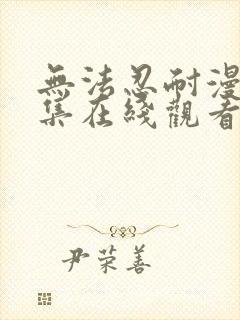 無法忍耐漫
集在綫觀看
尹荣善